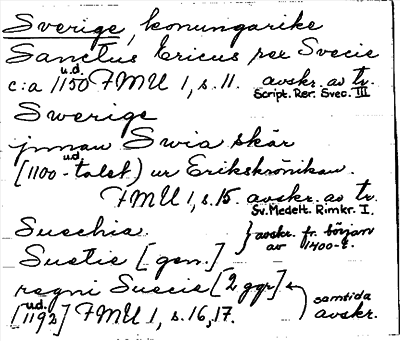 Sverige, konungarike
Sanctus Ericus rex Svecie
u.d.
c:a 1150 FMU 1, s. 11. avskr. av tr.
Script. Rer. Svec. III
Swerige
jnnan Swia skär
u.d.
[1100-talet] ur Erikskrönikan.
FMU 1, s. 15. avskr. av tr.
Sv. Medelt. Rimkr. I.
Suechia. } avskr. fr. början
av 1400-t.
Suetie [gen.]
regni Suecie [2 ggr]
u.d. samtida
[1192] FMU 1, s. 16, 17. avskr.